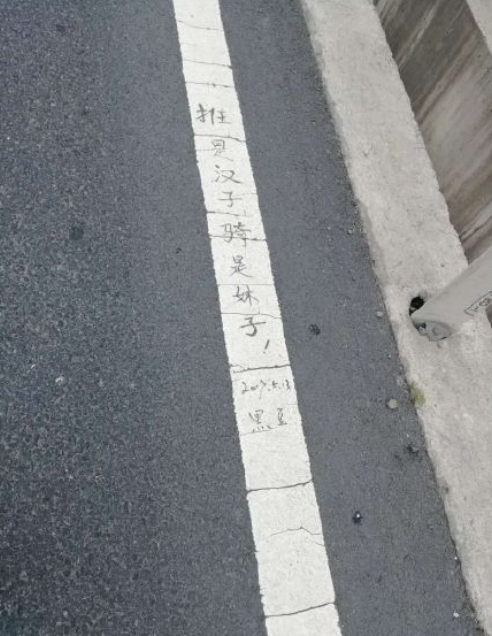 推是汉子骑是妹子！
2017.5.13
黑豆